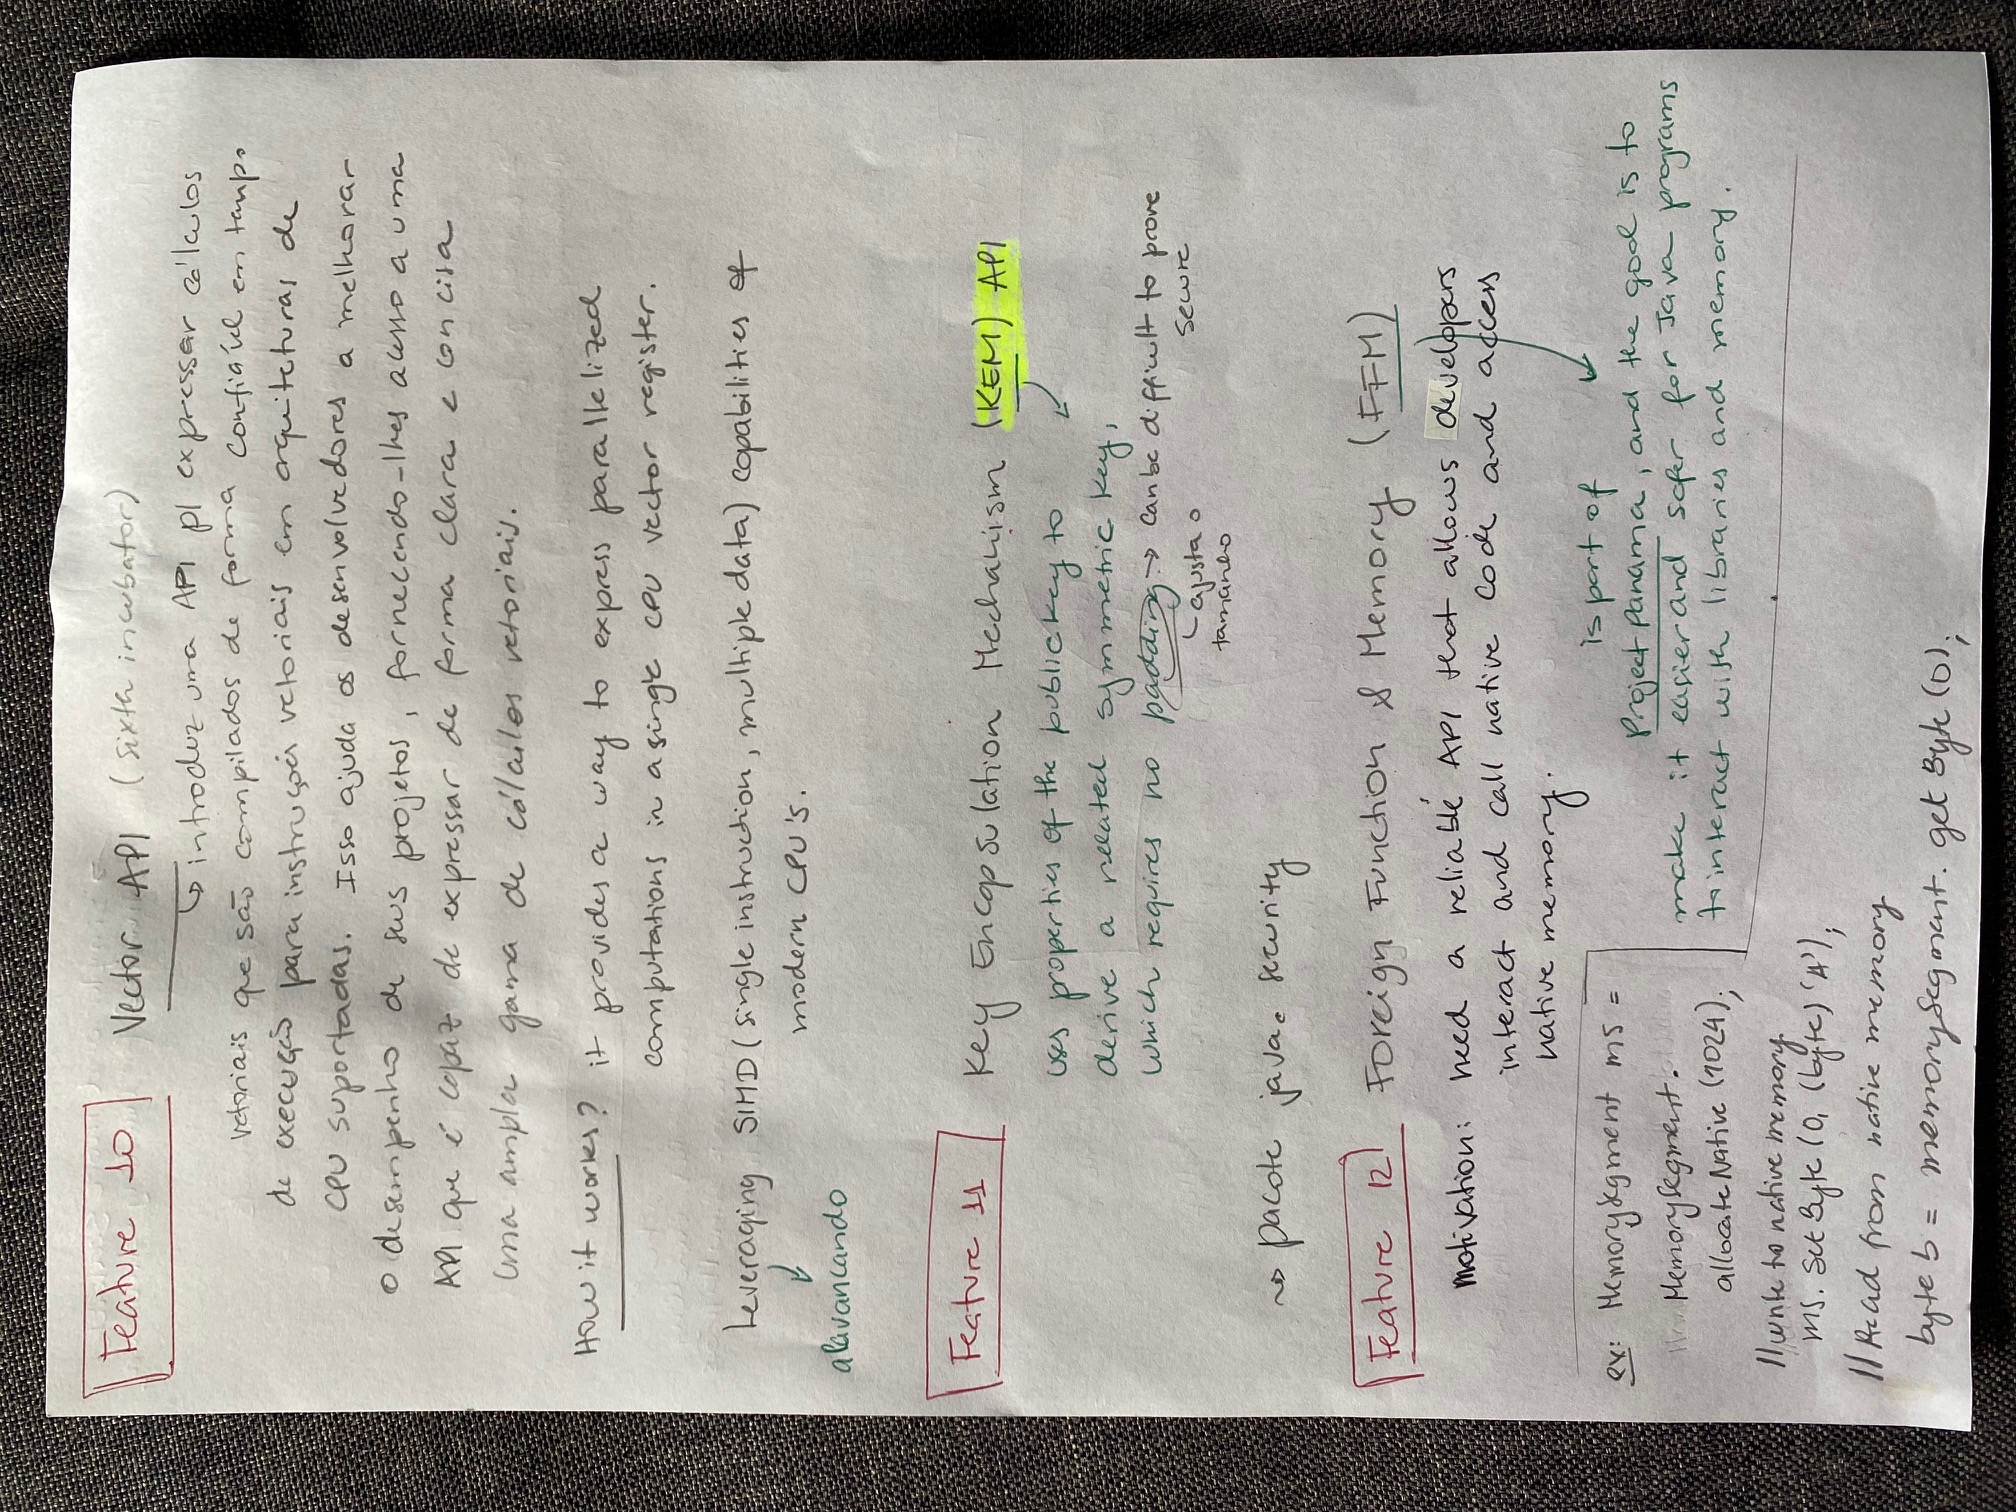 Feature 10
Vector API (sixth incubator)
↳ introduz uma API p/ expressar cálculos
vetoriais que são compilados de forma confiável em tempo
de execução para instruções vetoriais em arquiteturas de
CPU suportadas. Isso ajuda os desenvolvedores a melhorar
o desempenho de seus projetos, fornecendo-lhes acesso a uma
API que é capaz de expressar de forma clara e concisa
uma ampla gama de cálculos vetoriais.
How it works? it provides a way to express parallelized
computations in a single CPU vector register.
Leveraging SIMD (single instruction, multiple data) capabilities of
modern CPU's.
alavancando
Feature 11
Key Encapsulation Mechanism (KEM) API
uses properties of the public key to
derive a related symmetric key,
which requires no padding → can be difficult to prove
secure
ajusta o
tamanho
~> pacote java. security
Feature 12
Foreign Function & Memory (FFM)
motivation: need a reliable API that allows developers
interact and call native code and access
native memory.
is part of
Project Panama, and the goal is to
make it easier and safer for Java programs
to interact with libraries and memory.
ex: MemorySegment ms =
MemorySegment.
allocateNative (1024);
//write to native memory
ms. setByte (0, (byte) 'A');
//Read from native memory
byte b = memorySegment. getByte (0);